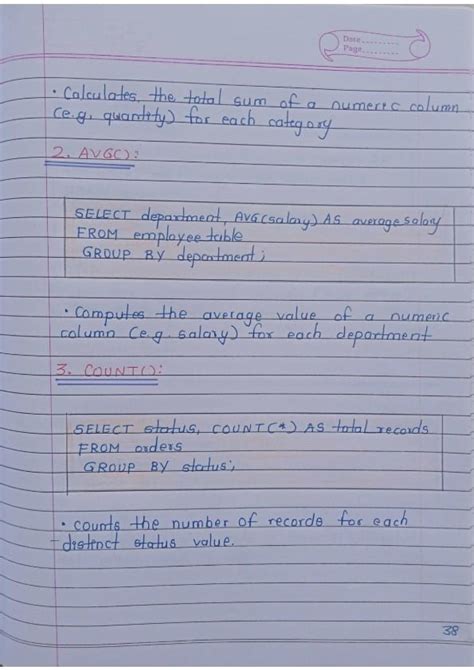 Date.........
Page.........
• Calculates the total sum of a numeric column
(e.g. quantity) for each category
2. AVG():
SELECT department, AVG(salary) AS average salary
FROM employee table
GROUP BY department;
• Computes the average value of a numeric
column (e.g. salary) for each department
3. COUNT():
SELECT status, COUNT(*) AS total records
FROM orders
GROUP BY status;
• counts the number of records for each
distinct status value.
38